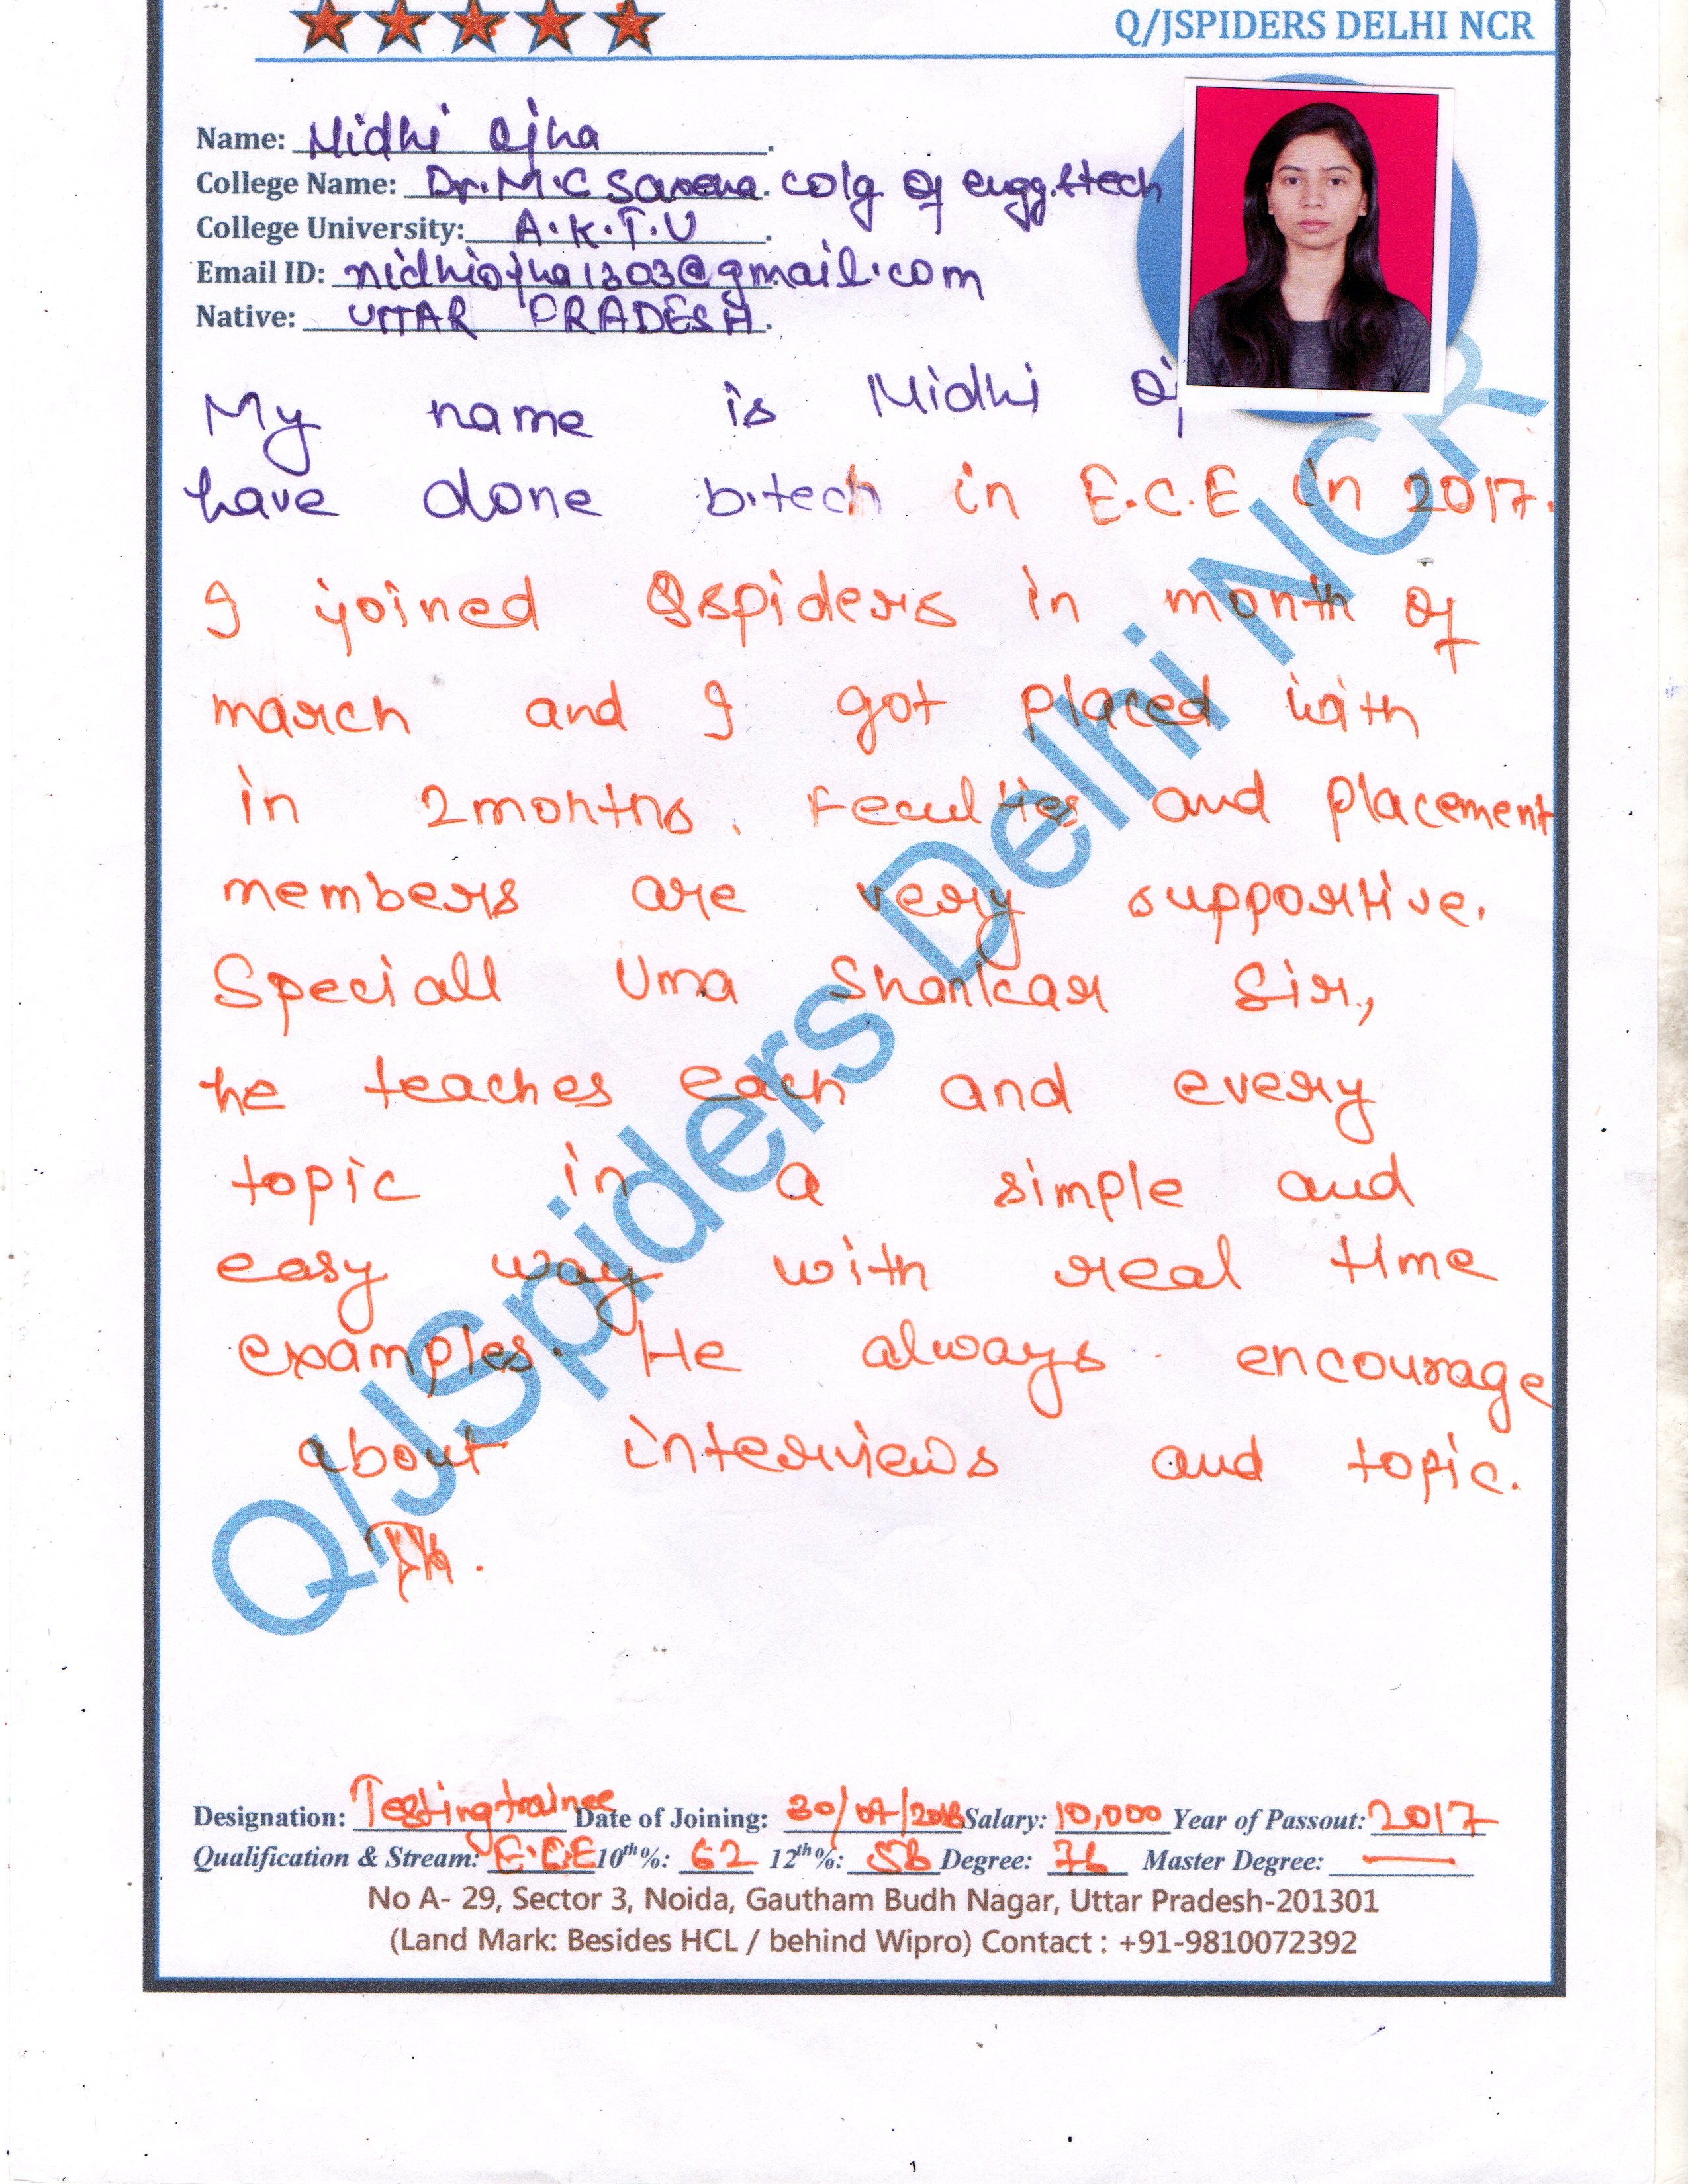 Q/JSPIDERS DELHI NCR
Name: Nidhi Ojha
College Name: Dr. M.C Saxena colg of engg. & tech
College University: A.K.T.U
Email ID: nidhiojha1303@gmail.com
Native: UTTAR PRADESH
My name is Nidhi Oj
have done b.tech in E.C.E in 2017.
I joined Qspiders in month of
march and I got placed with
in 2months. Feculties and placement
members are very supportive.
Speciall Uma Shankar Sir,
he teaches each and every
topic in a simple and
easy way with real time
examples. He always encourage
about interviews and topic.
Q/JSpiders Delhi NCR
Designation: Testing trainee Date of Joining: 30/07/2018 Salary: 10,000 Year of Passout: 2017
Qualification & Stream: E.C.E 10th%: 62 12th%: 58 Degree: 76 Master Degree: —
No A- 29, Sector 3, Noida, Gautham Budh Nagar, Uttar Pradesh-201301
(Land Mark: Besides HCL / behind Wipro) Contact : +91-9810072392